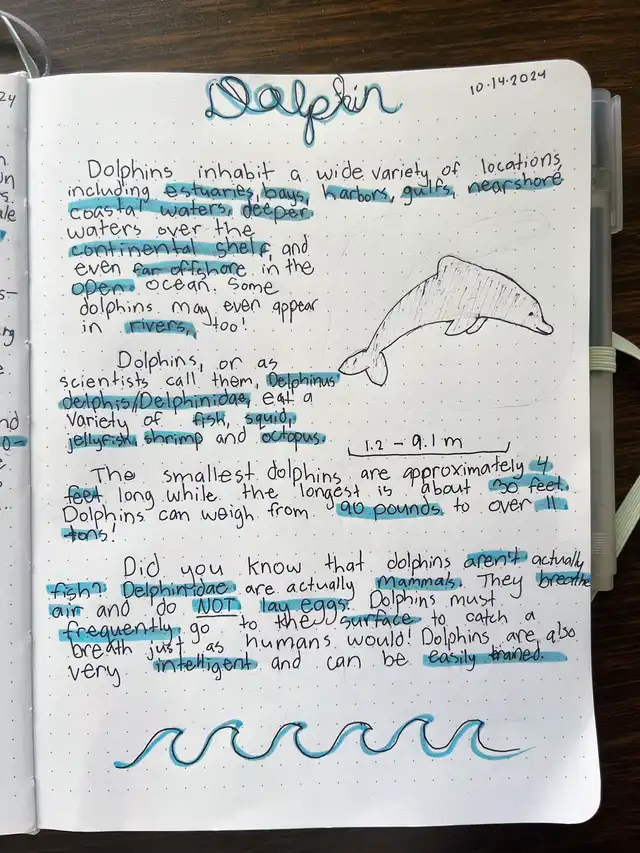 Dolphin
10.14.2024
Dolphins inhabit a wide variety of locations,
including estuaries, bays, harbors, gulfs, nearshore
coastal waters, deeper
waters over the
continental shelf, and
even far offshore in the
open ocean. Some
dolphins may even appear
in rivers, too!
Dolphins, or as
scientists call them, Delphinus
delphis/Delphinidae, eat a
variety of fish, squid,
jellyfish, shrimp and octopus.
1.2 - 9.1 m
The smallest dolphins are approximately 4
feet long while the longest is about 30 feet.
Dolphins can weigh from 90 pounds to over 11
tons!
Did you know that dolphins aren't actually
fish? Delphinidae are actually mammals. They breathe
air and do NOT lay eggs. Dolphins must
frequently go to the surface to catch a
breath just as humans would! Dolphins are also
very intelligent and can be easily trained.